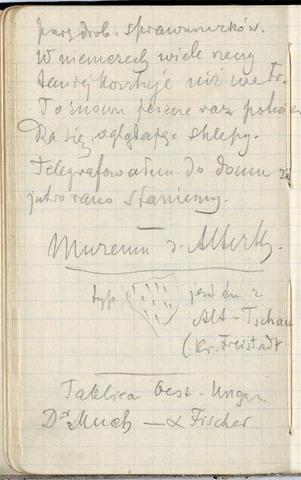 drob. sprawunków.
W niemczech wiele rzeczy
taniej kosztuje niż we Fr.
To znowu jeszcze raz
się oglądając sklepy.
Telegrafowałem do domu że
jutro rano staniemy.
Muzeum d. Albert.
typ jest z
Alt - Tschau
(Kr. Freistadt
Tablica Oest. Ungar.
Dr Much — & Fischer